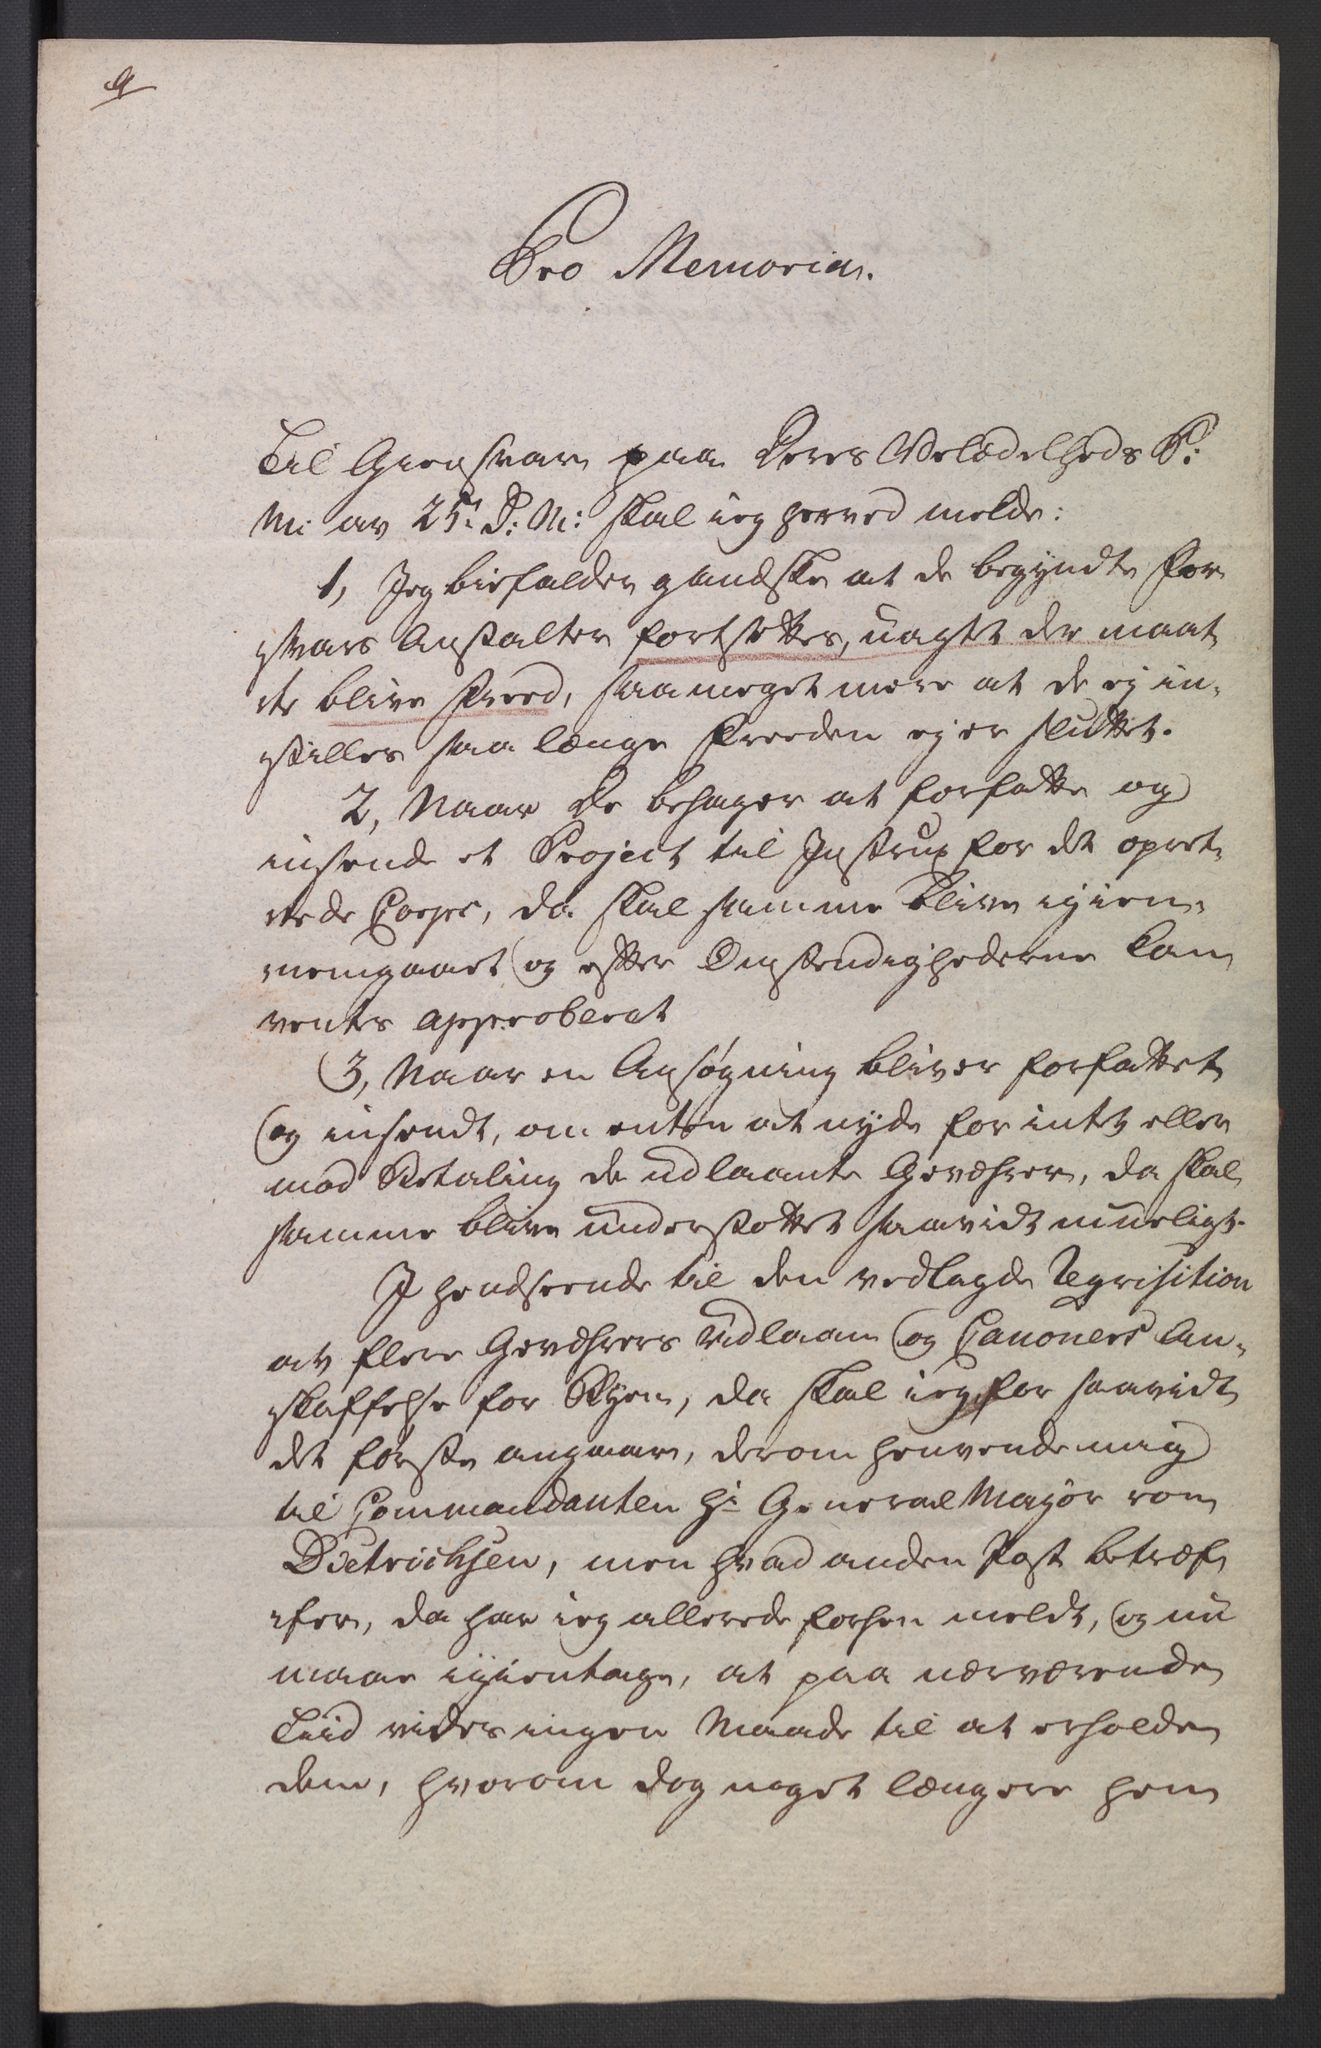 9
Pro Memoria.
Til Giensvar paa Deres Velædelheds P:
M: av 25. d: M: skal ieg herved melde:
1, Jeg biefalder gandske at de begyndte For
svars Anstalter fortsettes, uagtet der maat
te blive Freed, saameget mere at de ej in-
stilles saa længe Freeden ej er sluttet.
2, Naar De behager at forfatte og
insende et Project til Instrux for det opret-
tede Corps, da skal samme blive igien-
nemgaaet og efter Omstendighederne kan
ventes approberet
3, Naar en Ansøgning bliver forfattet
og insendt, om enten at nyde for intet eller
mod Betaling de udlaante Gevæhrer, da skal
samme blive understøttet saavidt mueligt.
I henseende til den vedlagde Reqvisition
av flere Gevæhrers Udlaan og Canoners An-
skaffelse for Byen, da skal ieg for saavidt
det første angaaer, derom henvende mig
til Commandanten Hr General Major von
Dietrichsen, men hvad anden Post betref
fer, da har ieg allerede forhen meldt, og nu
maae igientage, at paa nærværende
Tiid vides ingen Maade til at erholde
dem, hvorom dog noget længere hen